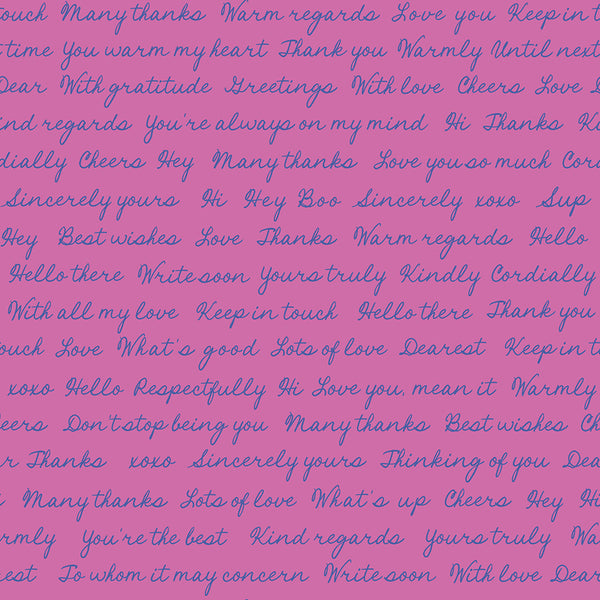 touch Many thanks Warm regards Love you Keep in t
time You warm my heart Thank you Warmly Until next
Dear With gratitude Greetings With love Cheers Love D
ind regards You're always on my mind Hi Thanks Ki
dially Cheers Hey Many thanks Love you so much Cord
Sincerely yours Hi Hey Boo Sincerely xoxo Sup
Hey Best wishes Love Thanks Warm regards Hello
Hello there Write soon Yours truly Kindly Cordially
With all my love Keep in touch Hello there Thank you
ouch Love What's good Lots of love Dearest Keep in to
xoxo Hello Respectfully Hi Love you, mean it Warmly
eers Don't stop being you Many thanks Best wishes Ch
r Thanks xoxo Sincerely yours Thinking of you Dea
Many thanks Lots of love What's up Cheers Hey Hi
rmly You're the best Kind regards Yours truly Wa
rest To whom it may concern Write soon With love Dear